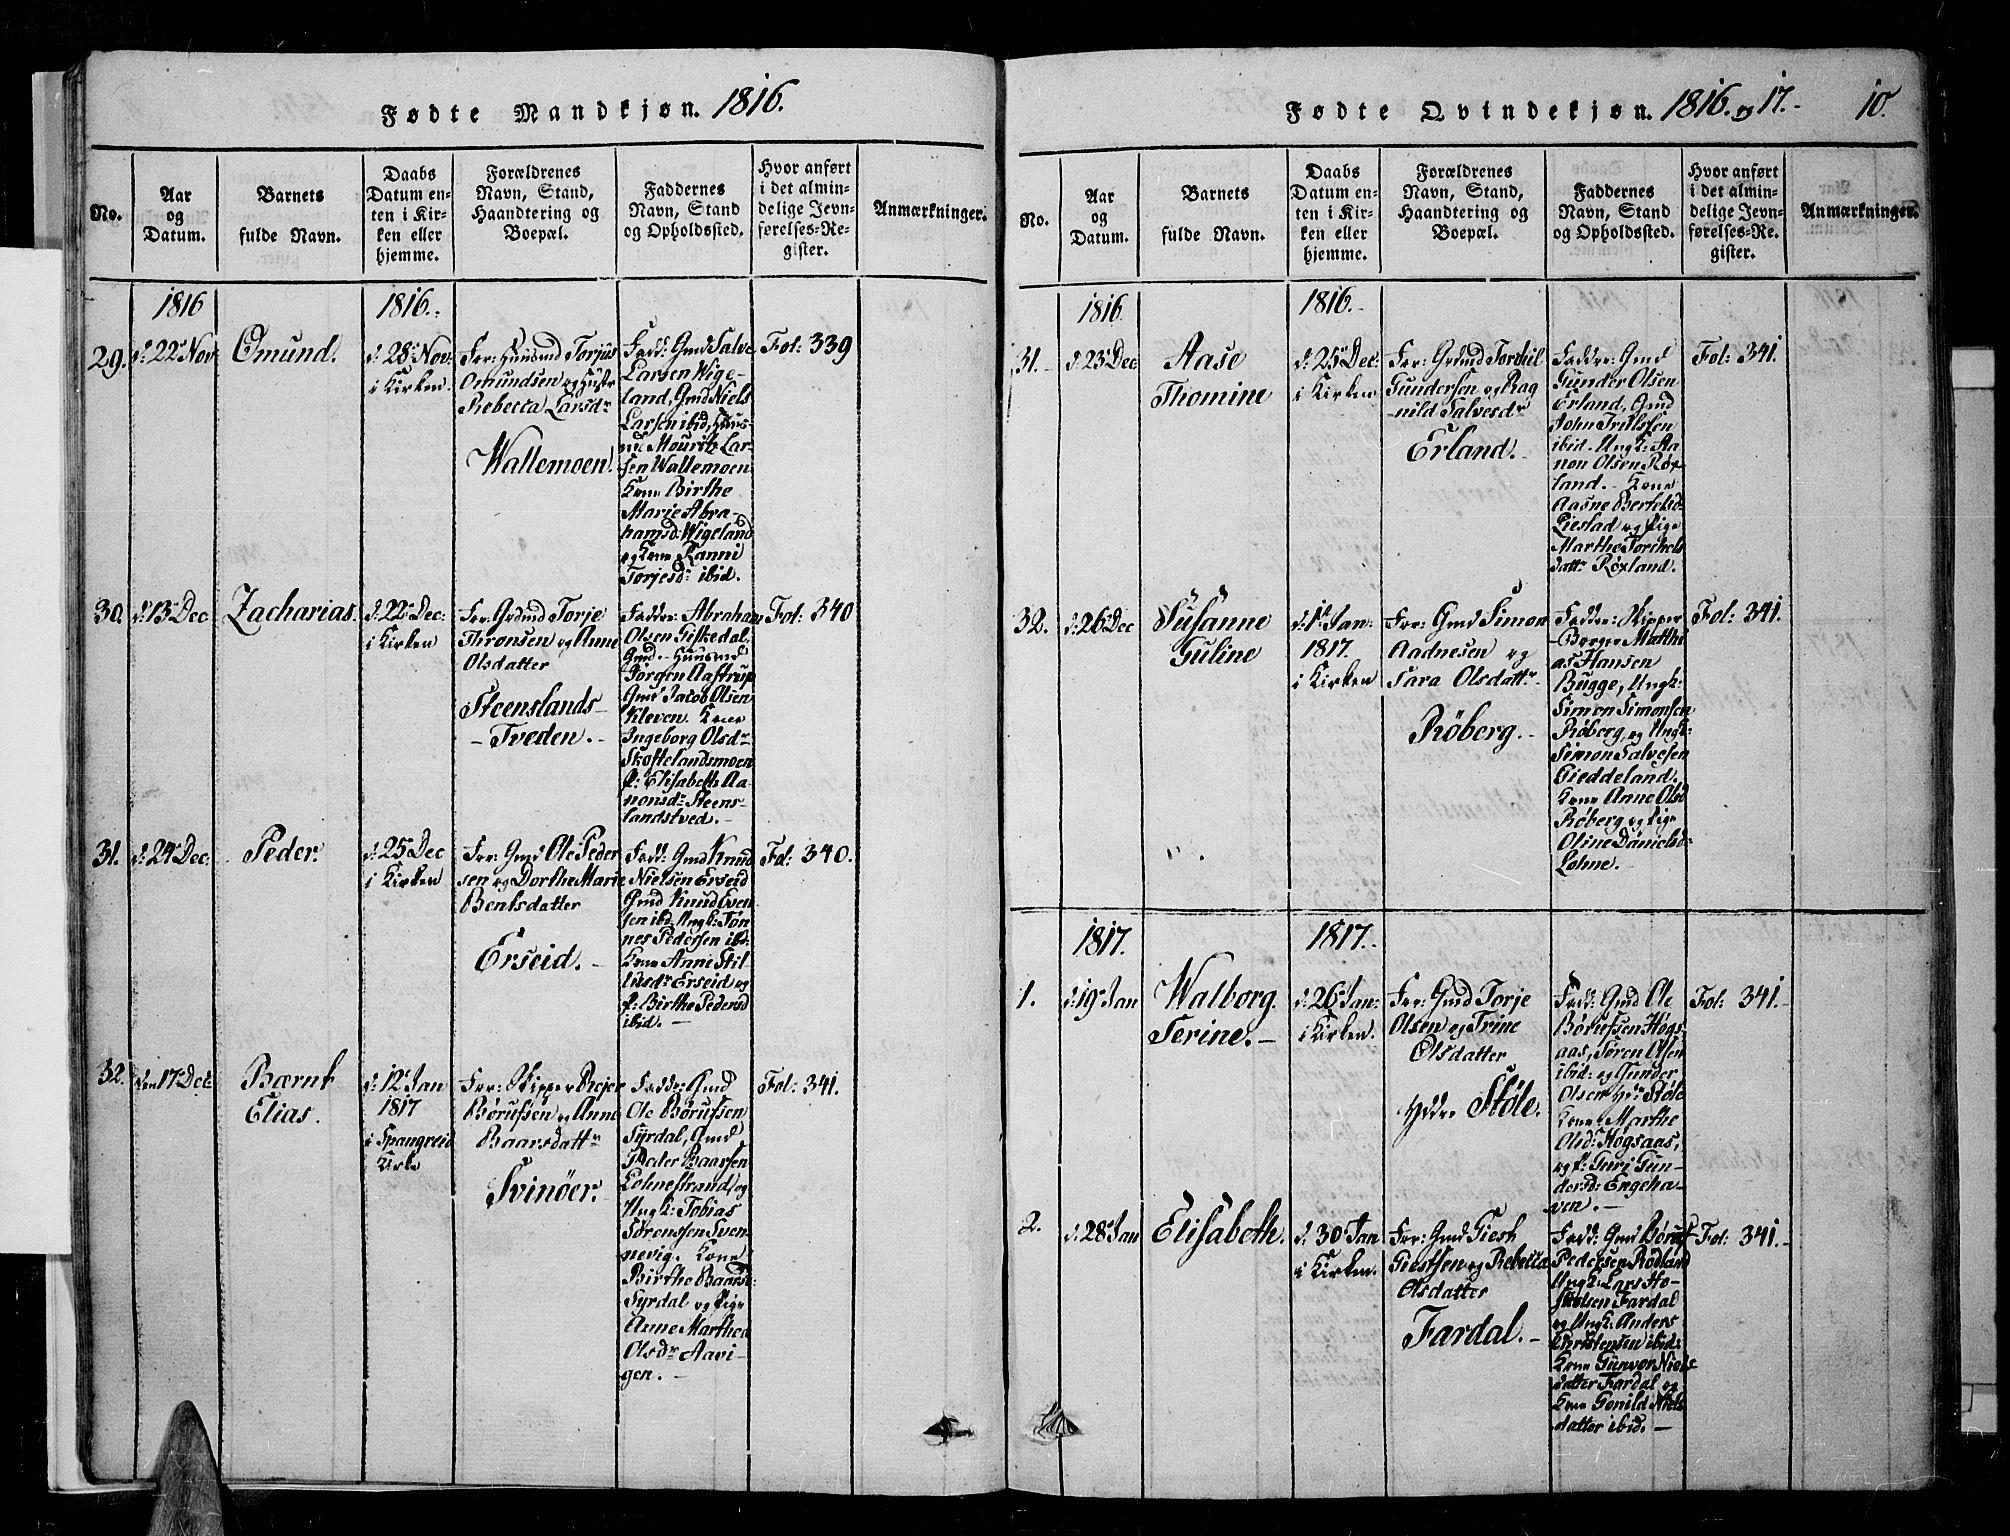 Fødte Mandkjøn. 1816.
No.
Aar
og
Datum.
Barnets
fulde Navn.
Daabs
Datum en-
ten i Kir-
ken eller
hjemme.
Forældrenes
Navn, Stand,
Haandtering og
Boepæl.
Faddernes
Navn, Stand
og Opholdssted.
Hvor anført
i det almin-
delige Jevn-
førelses-Re-
gister.
Anmærkninger.
1816
1816.
29.
d: 22 Nov
Omund.
d: 28 Nov:
i Kirken.
For: Huusmd Torjus
Omundsen og Hustr
Rebecca Larsdr
Wallemoen.
Fadd: Gmd Salve
Larsen Wige-
land, Gmd Niels
Larsen ibid, Huus-
md Mouritz Lar-
sen Wallemoen
Kone Birthe
Marie Abra-
hamsd: Wigeland
og Kone Ranni
Torjesdr: ibid.
Fol: 339
30.
d: 13 Dec
Zacharias.
d: 22 Dec:
i Kirken
For: Grdmd Torje
Thronsen og Anne
Olsdatter
Steenslands-
- Tveden. -
Fadder: Abraham
Olsen Giskedal
Gmd. Huusmd
Jørgen Aastrup
Gmd Jacob Olsen
Kleven. Kone
Ingeborg Olsdr
Skoftelandsmoen
P: Elisabeth Aa-
nonsdr Steens-
landstved. -
Fol: 340
31.
d: 24 Dec:
Peder.
d: 25 Dec
i Kirken
For: Gmd Ole Peder
sen og Dorthe Marie
Bentsdatter
Erseid. -
Fadd: Gmd Knud
Nielsen Erseid
Gmd Knud Even
sen ibd. Ungk: Tøn-
nes Pedersen ibd.
Kone Anne Stil-
lusdr Erseid og
P: Birthe Pedersd
ibid. -
Fol: 340.
32.
den 17 Dec
Bærnt
Elias.
d: 12 Jan
1817
i Spangreid
Kirke
For: Skipper Rejer
Børufsen og Anne
Baarsdattr
Svinöer.
Fadd: Gmd
Ole Børufsen
Syrdal, Gmd
Peder Baarsen
Lohnestrand, og
Ungk: Tobias
Sørenssen Sven-
nevig. Kone
Birthe Baarsd:
Syrdal og Pige
Anne Marthea
Olsdr Aavi-
gen. -
Fol: 341.
Fødte Qvindekjøn. 1816. og 17. - 10.
No.
Aar
og
Datum.
Barnets
fulde Navn.
Daabs
Datum en-
ten i Kir-
ken eller
hjemme.
Forældrenes
Navn, Stand,
Haandtering og
Boepæl.
Faddernes
Navn, Stand
og Opholdssted.
Hvor anført
i det almin-
delige Jevn-
førelses-Re-
gister.
Anmærkninger.
1816.
1816.
31.
d: 23 Dec:
Aase
Thomine
d: 25 Dec:
i Kirken
For: Grdmd Torkil
Gundersen og Rag
nild Salvesdr
Erland.
Fadder: Gmd
Gunder Olsen
Erland, Gmd
John Trulssen
ibid. Ungk: Aa-
non Olsen Røx-
land. - Kone
Aasne Bertelsd:
Liestad og Pige
Marthe Torkels
dattr Røxland.
Fol: 341.
32.
d: 26 Dec
Susanne
Guline
d: 1 Jan:
1817.
i Kirken
For: Gmd Simon
Aadnesen og
Sara Olsdattr
Röberg. -
Fadder: Skipper
Borger Matthi-
as Hansen
Bugge, Ungk:
Simon Simonsen
Röberg, og Ungk:
Simon Salvesen
Gieddeland.
Kone Anne Olsd
Röberg og Pige
Oline Daniels d:
Lohne. -
Fol: 341.
1817.
1817.
1.
d: 19 Jan
Walborg
Serine. -
d: 26 Jan:
i Kirken.
For: Gmd Torje
Olsen og Trine
Olsdatter
Støle.
Fadd: Gmd Ole
Børufsen Høgs-
aas, Søren Olsen
ibid: og Gunder
Olsen Støle
Kone Marthe
Olsd: Høgsaas,
og P: Guri Gun-
dersd: Engeha-
ven. -
Fol: 341. -
2.
d: 28 Jan
Elisabeth.
d: 30 Jan
i Kirken.
For: Gmd Giest
Giestsen og Rebecca
Olsdatter
Fardal. -
Fadd: Gmd Børuf
Pedersen Rødland
Ungk: Lars
Fardal
og Ungk: Anders
Christensen ibid:
Kone Gunvor Niels
datter Fardal og
Kone Gonild Niels
datter ibid. -
Fol: 341. -